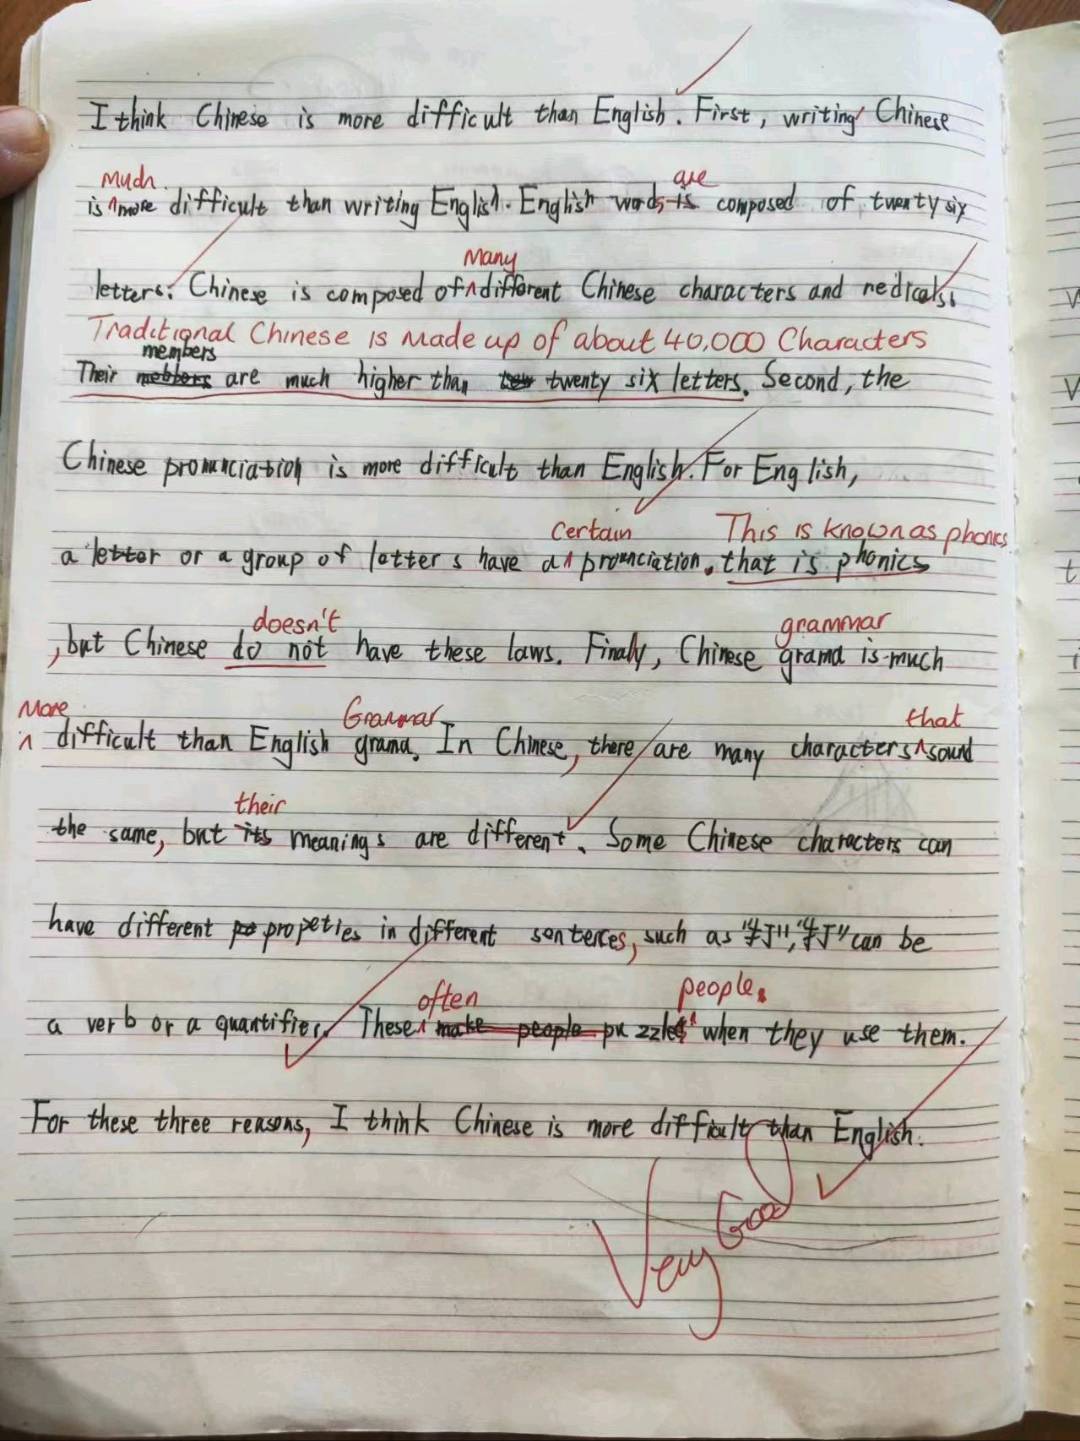 I think Chinese is more difficult than English. First, writing Chinese
much are
is ^more difficult than writing English. English words is composed of twenty six
Many
letters. Chinese is composed of ^ different Chinese characters and redicals.
Traditional Chinese is made up of about 40,000 Characters
members
Their mebbers are much higher than twenty six letters. Second, the
Chinese pronunciation is more difficult than English. For English,
Certain This is known as phonics
a letter or a group of letters have a ^ pronunciation. that is phonics
doesn't grammar
, but Chinese do not have these laws. Finaly, Chinese grama is much
More Grammar that
^ difficult than English grama. In Chinese, there are many characters ^ sound
their
the same, but its meanings are different. Some Chinese characters can
have different propeties in different sentences, such as "打", "打" can be
often people.
a verb or a quantifier. These ^ make people puzzles ^ when they use them.
For these three reasons, I think Chinese is more difficult than English.
Very Good